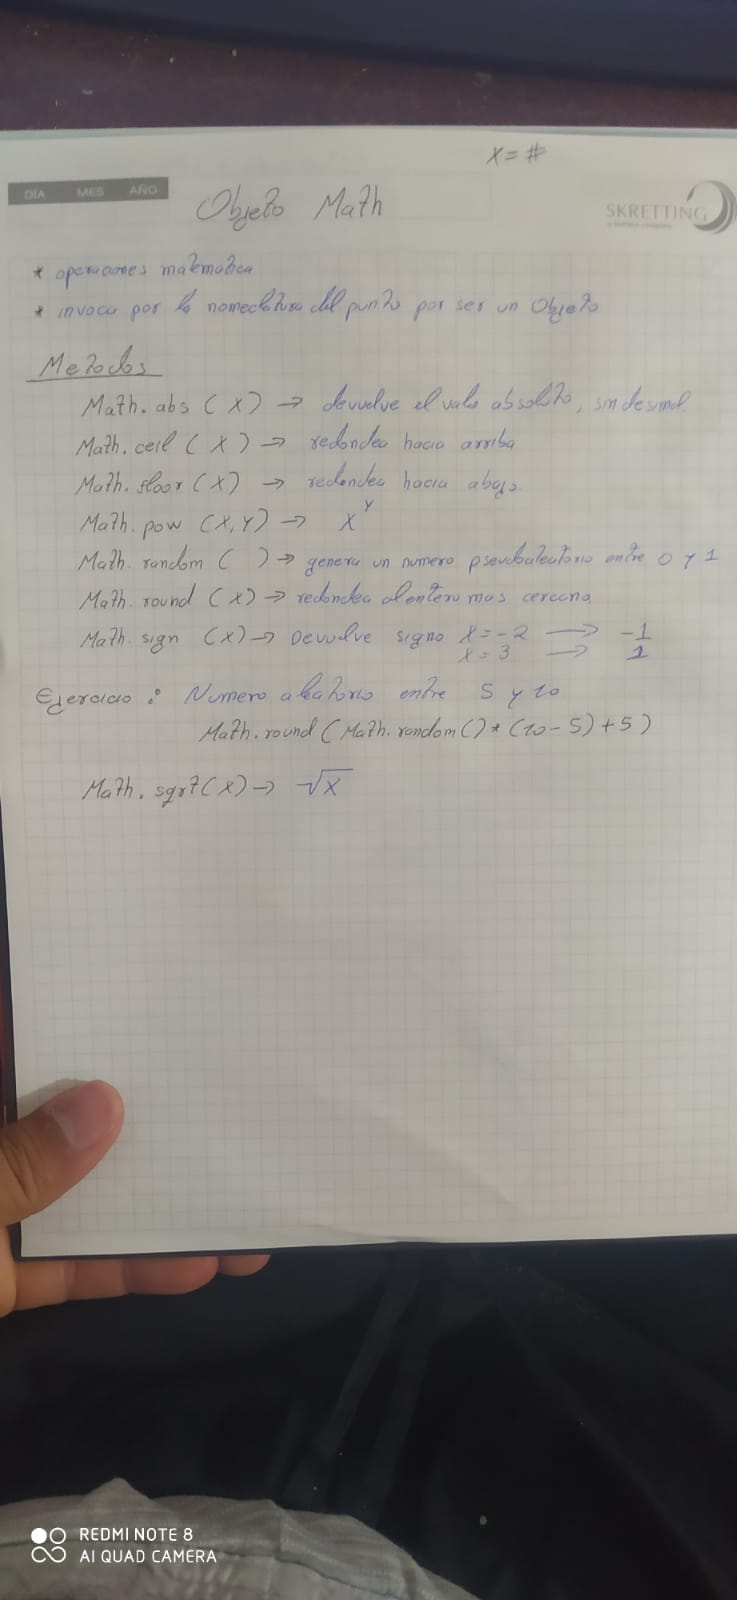 X = #
DÍA MES AÑO
Objeto Math
SKRETTING
* operaciones matematica
* invoca por la nomeclatura del punto por ser un Objeto
Metodos
Math. abs (X) → devuelve el valo absoluto, sin desimal.
Math. ceil (X) → redondea hacia arriba
Math. floor (X) → redondea hacia abajo.
Math. pow (X,Y) → X^Y
Math. random ( ) → genera un numero pseudoaleatorio entre 0 y 1
Math. round (X) → redondea al entero mas cercano.
Math. sign (X) → Devuelve signo X = -2 → -1
X = 3 → 1
Ejercicio : Numero aleatorio entre 5 y 10
Math. round (Math. random () * (10 - 5) + 5)
Math. sqrt (X) → √X
REDMI NOTE 8
AI QUAD CAMERA